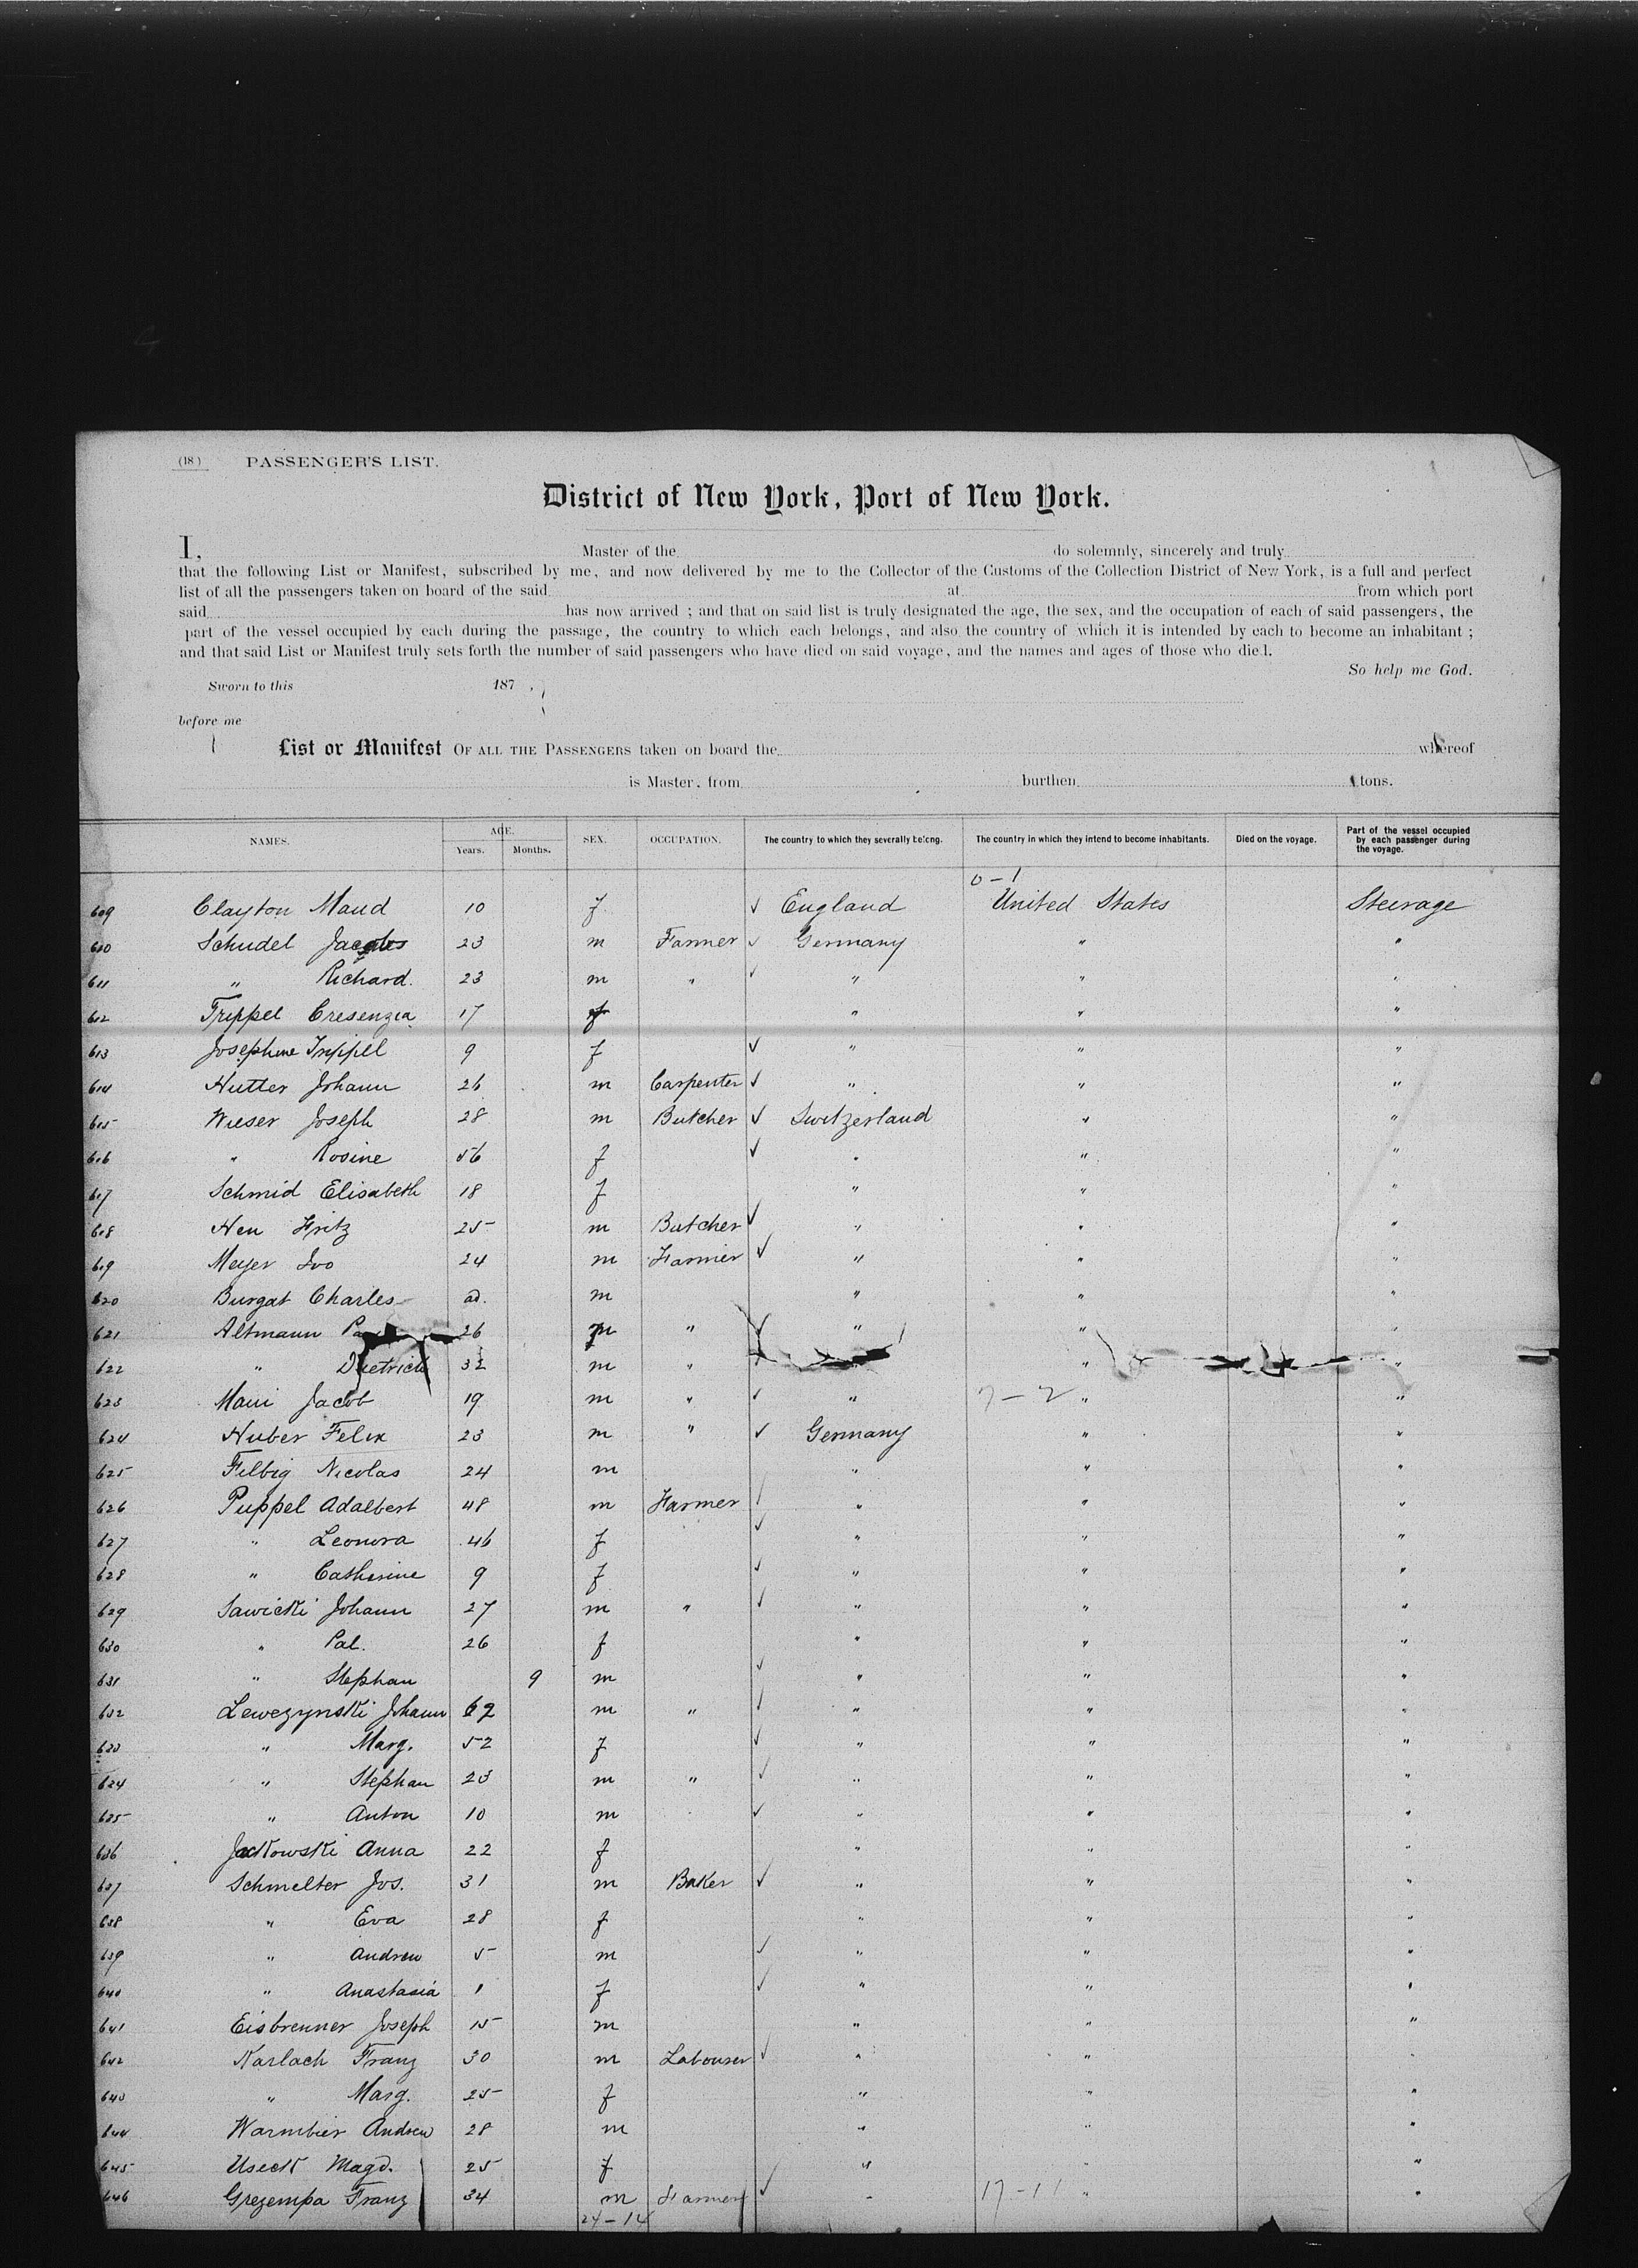 (18) PASSENGER'S LIST.
District of New York, Port of New York.
I, Master of the do solemnly, sincerely and truly
that the following List or Manifest, subscribed by me, and now delivered by me to the Collector of the Customs of the Collection District of New York, is a full and perfect
list of all the passengers taken on board of the said at from which port
said has now arrived ; and that on said list is truly designated the age, the sex, and the occupation of each of said passengers, the
part of the vessel occupied by each during the passage, the country to which each belongs, and also the country of which it is intended by each to become an inhabitant ;
and that said List or Manifest truly sets forth the number of said passengers who have died on said voyage, and the names and ages of those who died.
So help me God.
Sworn to this 187 .
before me
List or Manifest OF ALL THE PASSENGERS taken on board the whereof
is Master, from burthen tons.
NAMES. AGE. Years. Months. SEX. OCCUPATION. The country to which they severally belong. The country in which they intend to become inhabitants. Died on the voyage. Part of the vessel occupied by each passenger during the voyage.
0 - 1
609 Clayton Maud 10 f ✓ England United States Steerage
610 Schudel 23 m Farmer ✓ Germany " "
611 " Richard. 23 m " ✓ " " "
612 Trippel Cresenzia 17 f " " "
613 Josephine Trippel 9 f ✓ " " "
614 Hutter Johann 26 m Carpenter ✓ " " "
615 Wieser Joseph 28 m Butcher ✓ Switzerland " "
616 " Rosine 56 f ✓ " " "
617 Schmid Elisabeth 18 f " " "
618 Heu Fritz 25 m Butcher ✓ " " "
619 Meyer Ivo 24 m Farmer ✓ " " "
620 Burgat Charles ad. m " " "
621 Altmann 26 m " ✓ " " "
622 " Dietrich 32 m " " "
623 Maui Jacob 19 m " ✓ " 7 - 2 " "
624 Huber Felix 23 m " ✓ Germany " "
625 Filbig Nicolas 24 m " " "
626 Puppel Adalbert 48 m Farmer ✓ " " "
627 " Leonora 46 f ✓ " " "
628 " Catherine 9 f ✓ " " "
629 Sawicki Johann 27 m " ✓ " " "
630 " Pal. 26 f " " "
631 " Stephan 9 m ✓ " " "
632 Lewezynski Johann 62 m " ✓ " " "
633 " Marg. 52 f ✓ " " "
634 " Stephan 23 m " ✓ " " "
635 " Anton 10 m ✓ " " "
636 Jackowski Anna 22 f " " "
637 Schmelter Jos. 31 m Baker ✓ " " "
638 " Eva 28 f " " "
639 " Andrew 5 m ✓ " " "
640 " Anastasia 1 f ✓ " " "
641 Eisbrenner Joseph 15 m " " "
642 Karlach Franz 30 m Labourer ✓ " " "
643 " Marg. 25 f " " "
644 Warmbier Andrew 28 m " " "
645 Useck Magd. 25 f " " "
646 Grezempa Franz 34 m Farmer ✓ " 17 - 11 " "
24 - 14